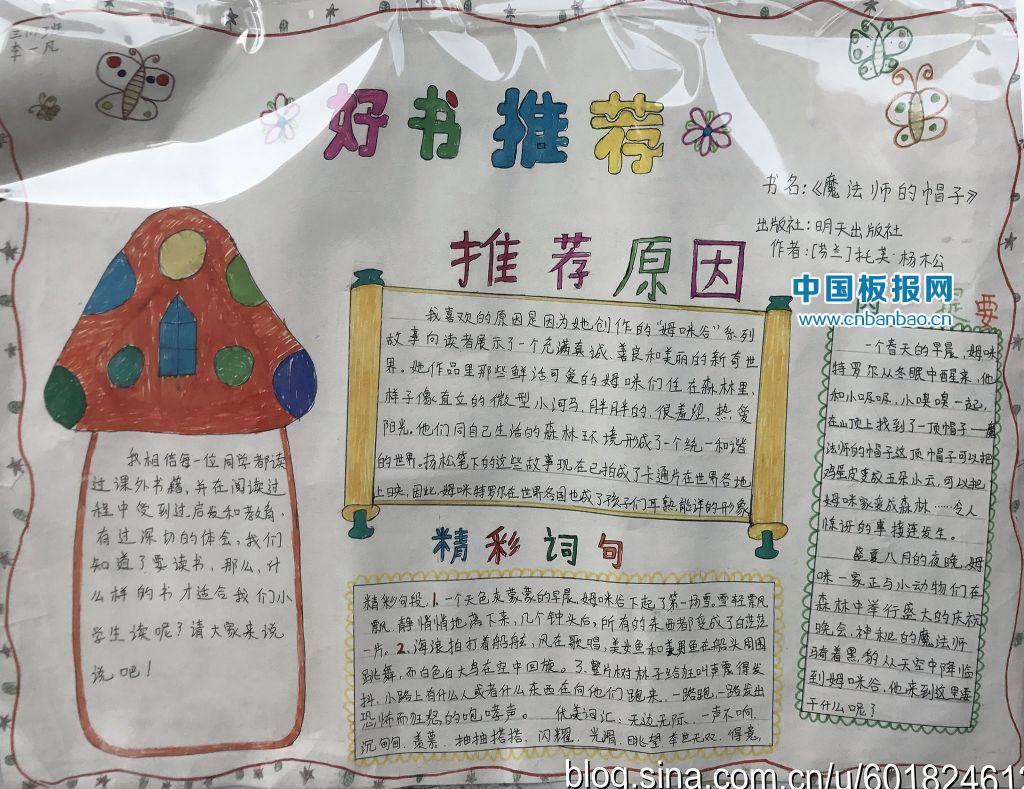 李一凡
好书推荐
书名:《魔法师的帽子》
出版社:明天出版社
作者:[芬兰]托芙·杨松
推荐原因
我喜欢的原因是因为她创作的"姆咪谷"系列
故事向读者展示了一个充满真诚、善良和美丽的新奇世
界。她作品里那些鲜活可爱的姆咪们住在森林里,
样子像直立的微型小河马,胖胖的,很羞涩,热爱
阳光。他们同自己生活的森林环境形成了一个统一和谐
的世界。杨松笔下的这些故事现在已拍成了卡通片在世界各地
上映,因此,姆咪特罗尔在世界各国也成了孩子们耳熟能详的形象
我相信每一位同学都读
过课外书籍,并在阅读过
程中受到过启发和教育,
有过深切的体会,我们
知道了要读书,那么,什
么样的书才适合我们小
学生读呢?请大家来说
说吧!
精彩词句
精彩句段,1.一个天色灰蒙蒙的早晨,姆咪谷下起了第一场雪。雪轻飘
飘,静悄悄地落下来,几个钟头后,所有的东西都变成了白茫茫
一片。2.海浪拍打着船舷,风在歌唱,美女鱼和美男鱼在船头周围
跳舞,而白色的大鸟在空中回旋。3.整片树林子给狂叫声震得发
抖,小路上有什么人或者什么东西在向他们跑来,一路跑,一路发出
恐怖而狂怒的咆哮声。 优美词汇:无边无际、一声不响、
沉甸甸、羡慕、抽抽搭搭、闪耀、光滑、眺望、举世无双、得意,
要
一个春天的早晨,姆咪
特罗尔从冬眠中醒来,他
和小吸吸,小嗅嗅一起,
在山顶上找到了一顶帽子——魔
法师的帽子这顶帽子可以把
鸡蛋皮变成五朵小云,可以把
姆咪家变成森林……令人
惊讶的事接连发生。
盛夏八月的夜晚,姆
咪一家正与小动物们在
森林中举行盛大的庆祝
晚会,神秘的魔法师
骑着黑豹从天空中降临
到姆咪谷,他来到这里要
干什么呢?
中国板报网
www.cnbanbao.cn
blog.sina.com.cn/u/601824612